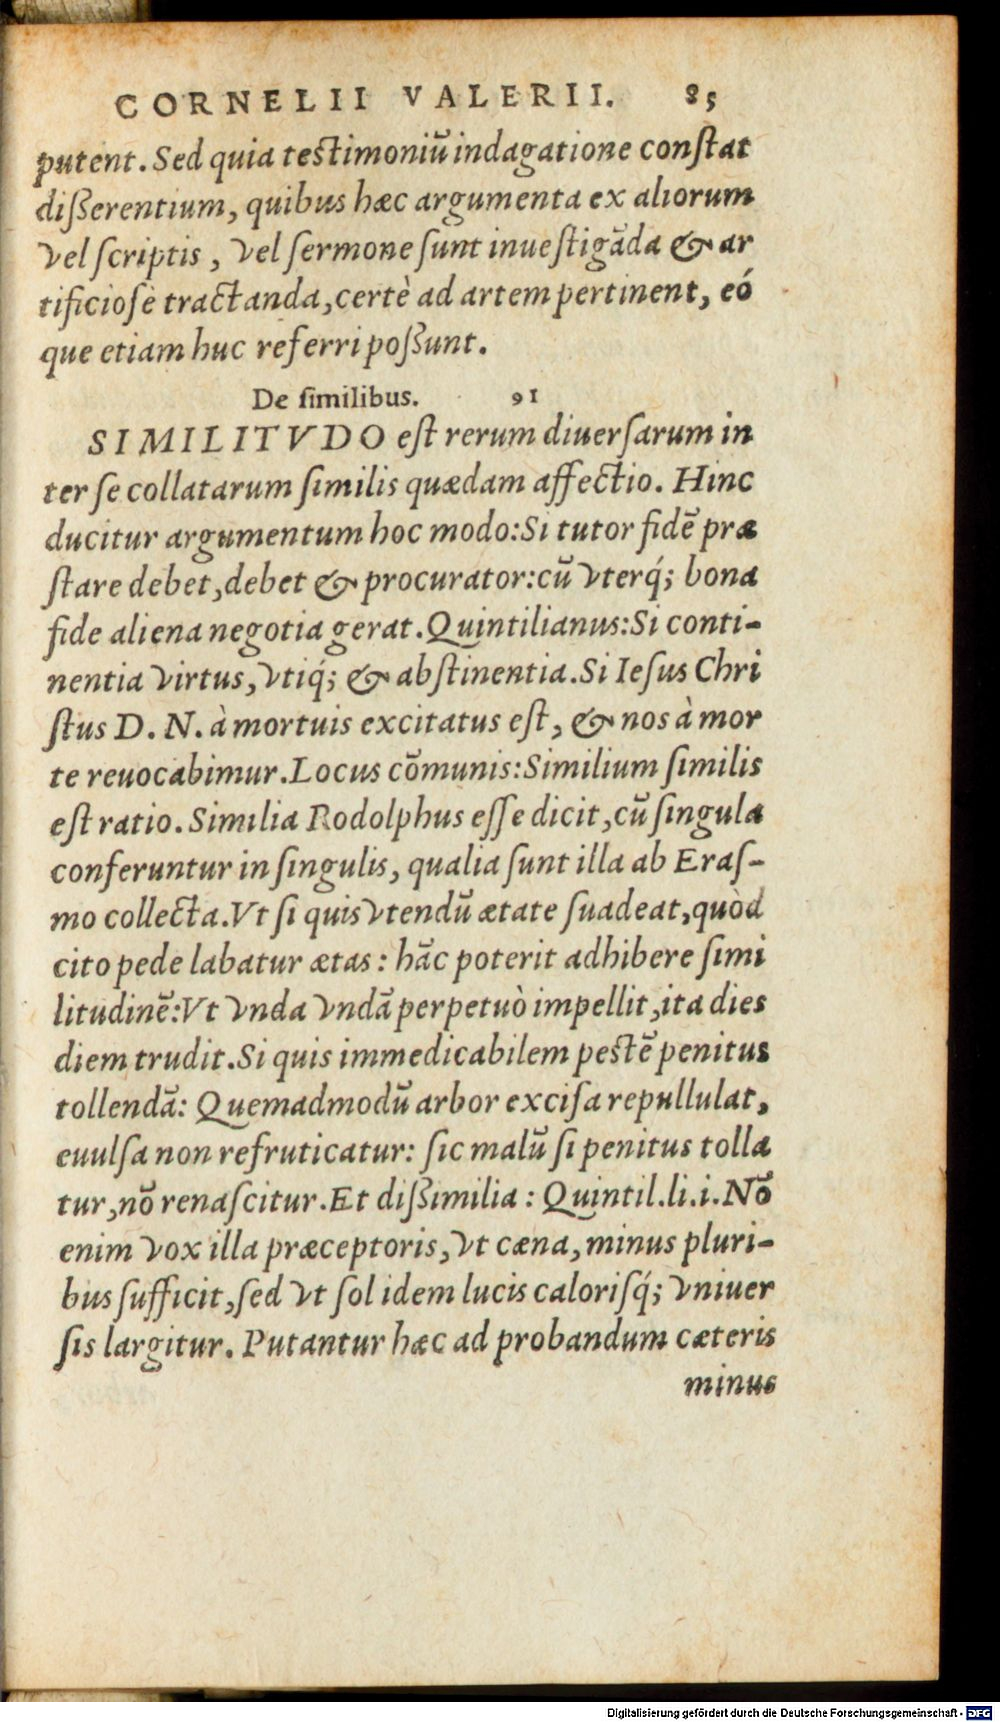 CORNELII VALERII. 85
putent. Sed quia testimoniū indagatione constat
disserentium, quibus hæc argumenta ex aliorum
vel scriptis, vel sermone sunt inuestigāda & ar
tificiosè tractanda, certè ad artem pertinent, eó
que etiam huc referri possunt.
De similibus. 91
SIMILITVDO est rerum diuersarum in
ter se collatarum similis quædam affectio. Hinc
ducitur argumentum hoc modo: Si tutor fidē præ
stare debet, debet & procurator: cū vterq́; bona
fide aliena negotia gerat. Quintilianus: Si conti-
nentia virtus, vtiq́; & abstinentia. Si Iesus Chri
stus D. N. à mortuis excitatus est, & nos à mor
te reuocabimur. Locus cōmunis: Similium similis
est ratio. Similia Rodolphus esse dicit, cū singula
conferuntur in singulis, qualia sunt illa ab Eras-
mo collecta. Vt si quis vtendū ætate suadeat, quòd
cito pede labatur ætas: hāc poterit adhibere simi
litudinē: Vt vnda vndā perpetuò impellit, ita dies
diem trudit. Si quis immedicabilem pestē penitus
tollendā: Quemadmodū arbor excisa repullulat,
euulsa non refruticatur: sic malū si penitus tolla
tur, nō renascitur. Et dissimilia: Quintil. li. i. Nō
enim vox illa præceptoris, vt cæna, minus pluri-
bus sufficit, sed vt sol idem lucis calorisq́; vniuer
sis largitur. Putantur hæc ad probandum cæteris
minus
Digitalisierung gefördert durch die Deutsche Forschungsgemeinschaft - DFG